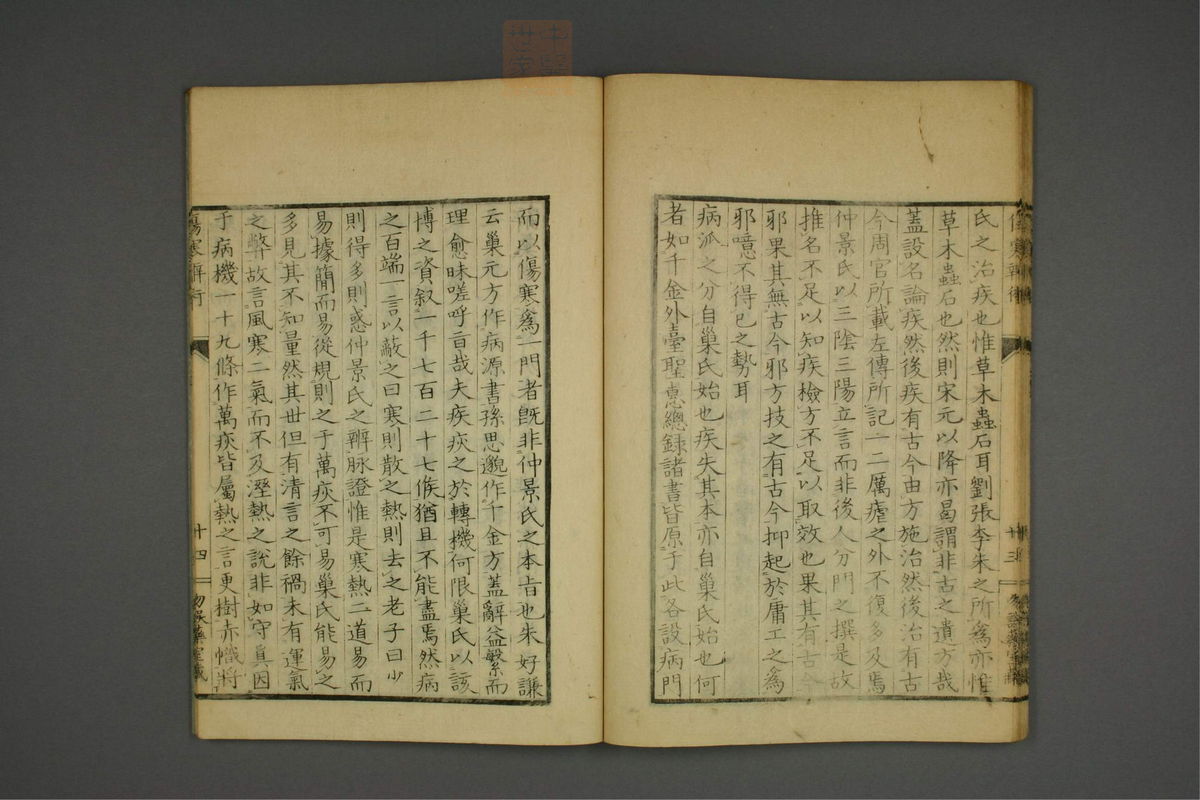 氏之治疾也惟草木蟲石耳劉張李朱之所爲亦惟
草木蟲石也然則宋元以降亦曷謂非古之遺方哉
蓋設名論疾然後疾有古今由方施治然後治有古
今周官所載左傳所記一二厲瘧之外不復多及焉
仲景氏以三陰三陽立言而非後人分門之撰是故
推名不足以知疾檢方不足以取效也果其有古今
邪果其無古今邪方技之有古今抑起於庸工之爲
邪噫不得已之勢耳
病派之分自巢氏始也疾失其本亦自巢氏始也何
者如千金外臺聖惠總錄諸書皆原于此各設病門
十三
而以傷寒爲一門者旣非仲景氏之本旨也朱好謙
云巢元方作病源書孫思邈作千金方蓋辭益繁而
理愈昧嗟呼旨哉夫疾疢之於轉機何限巢氏以該
博之資叙一千七百二十七候猶且不能盡焉然病
之百端一言以蔽之曰寒則散之熱則去之老子曰少
則得多則惑仲景氏之辨脉證惟是寒熱二道易而
易據簡而易從規則之于萬疢不可易巢氏能易之
多見其不知量然其世但有清言之餘禍未有運氣
之弊故言風寒二氣而不及溼熱之說非如守眞因
于病機一十九條作萬疾皆屬熱之言更樹赤幟將
傷寒辨術
十四